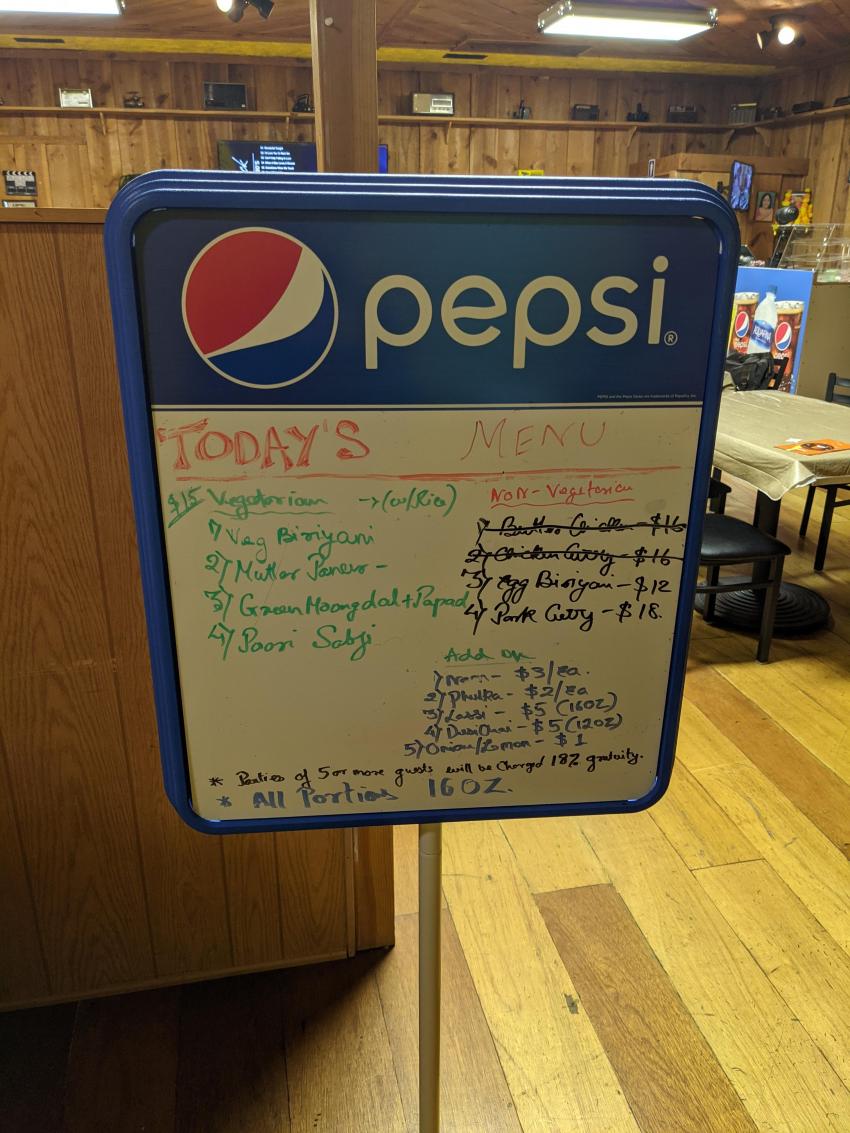 pepsi®
TODAY'S MENU
$15 Vegetarian →(w/Rice)
1) Veg Biriyani
2) Mutter Paneer -
3) Green Moongdal + Papad
4) Poori Sabji
Non-Vegetarian
1) Butter Chicken - $16
2) Chicken Curry - $16
3) Egg Biriyani - $12
4) Pork Curry - $18.
Add on
1) Naan - $3/Ea.
2) Phulka - $2/Ea
3) Lassi - $5 (16OZ)
4) Desi Chai - $5 (12OZ)
5) Onion/Lemon - $1
* Parties of 5 or more guests will be charged 18% gratuity.
* All Portions 16OZ.